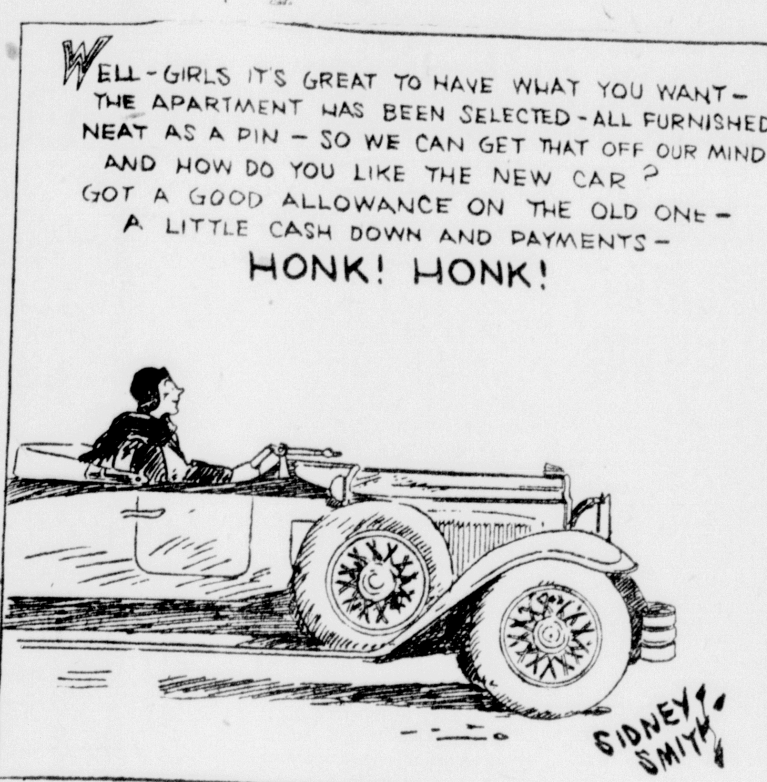 WELL-GIRLS IT'S GREAT TO HAVE WHAT YOU WANT-
THE APARTMENT HAS BEEN SELECTED-ALL FURNISHED
NEAT AS A PIN - SO WE CAN GET THAT OFF OUR MIND
AND HOW DO YOU LIKE THE NEW CAR?
GOT A GOOD ALLOWANCE ON THE OLD ONE-
A LITTLE CASH DOWN AND PAYMENTS-
HONK! HONK!
SIDNEY
SMITH